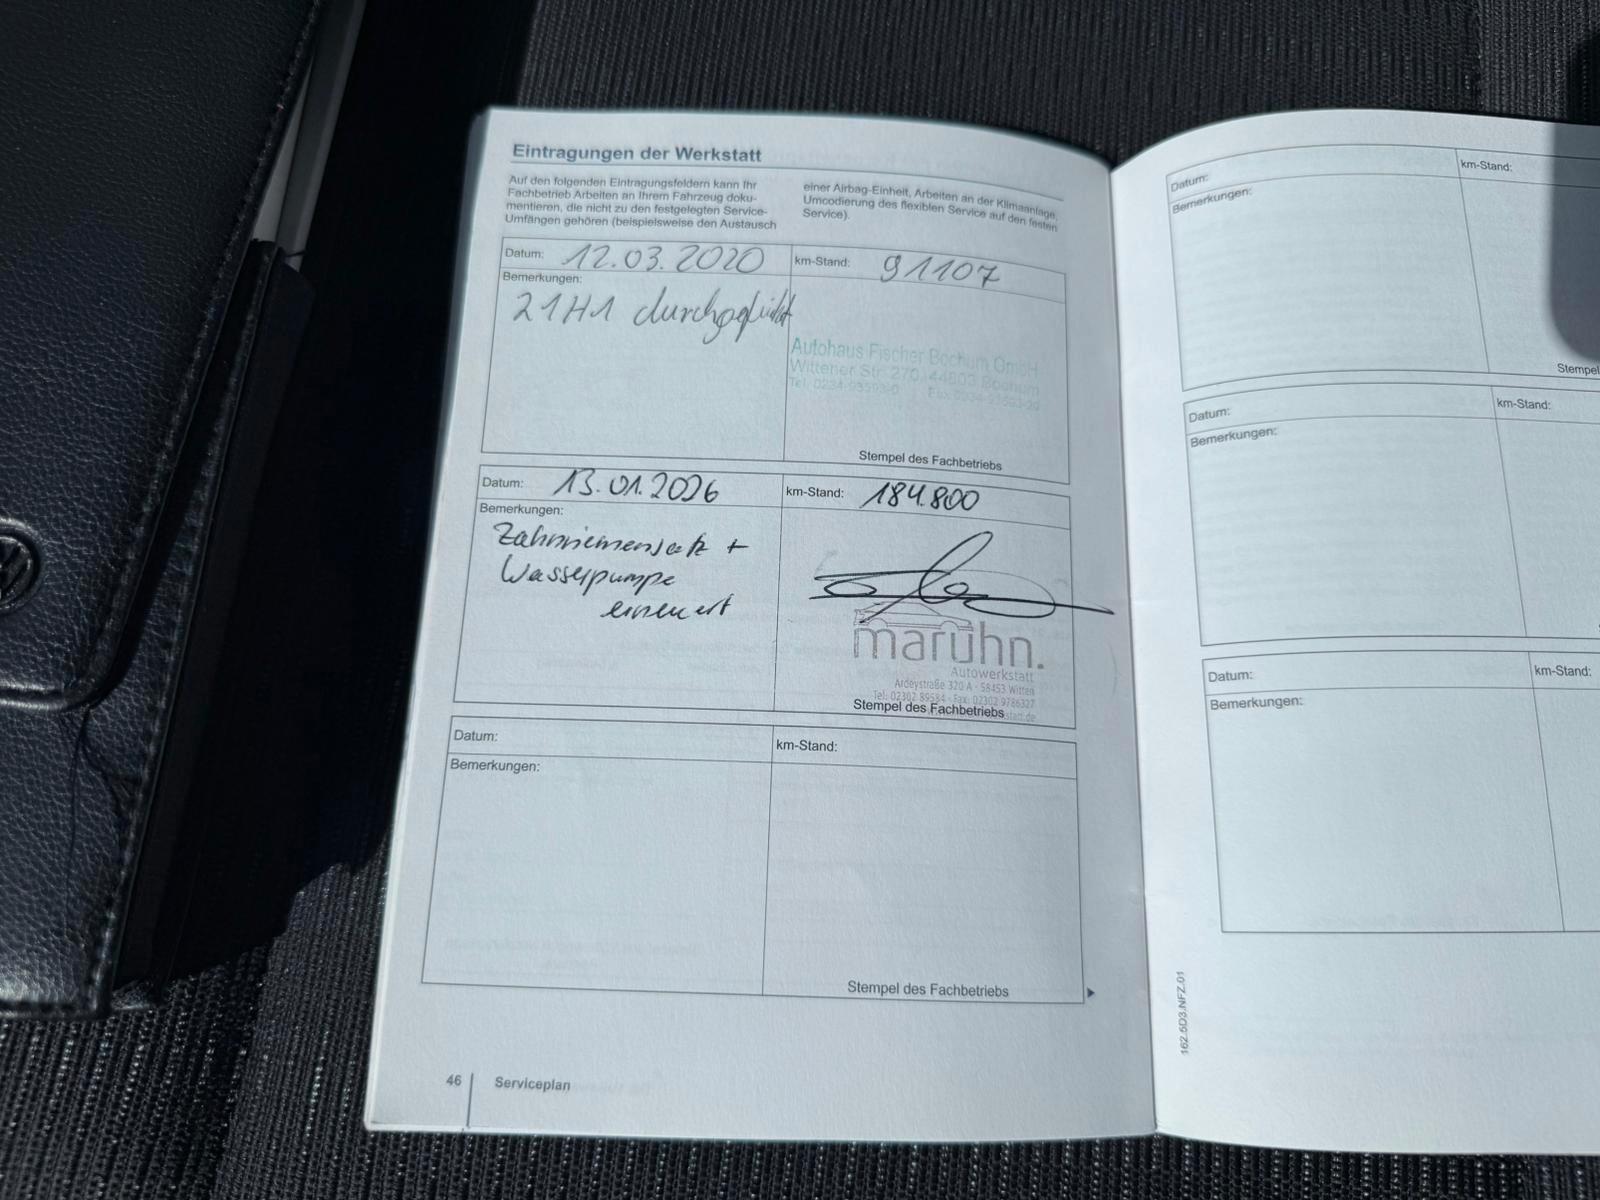 Eintragungen der Werkstatt
Auf den folgenden Eintragungsfeldern kann Ihr
Fachbetrieb Arbeiten an Ihrem Fahrzeug doku-
mentieren, die nicht zu den festgelegten Service-
Umfängen gehören (beispielsweise den Austausch
einer Airbag-Einheit, Arbeiten an der Klimaanlage,
Umcodierung des flexiblen Service auf den festen
Service).
Datum: 12.03.2020
km-Stand: 91107
Bemerkungen:
21H1 durchgeführt
Autohaus Fischer Bochum GmbH
Wittener Str. 270, 44803 Bochum
Stempel des Fachbetriebs
Datum: 13.01.2026
km-Stand: 184.800
Bemerkungen:
Zahnriemensatz +
Wasserpumpe
erneuert
maruhn.
Autowerkstatt
Ardeystraße 320 A - 58453 Witten
Tel: 02302 89584 - Fax: 02302 9786327
Stempel des Fachbetriebs
Datum:
km-Stand:
Bemerkungen:
Stempel des Fachbetriebs
46
Serviceplan
Datum:
km-Stand:
Bemerkungen:
Stempel
Datum:
km-Stand:
Bemerkungen:
Datum:
km-Stand:
Bemerkungen:
162.5D3.NFZ.01